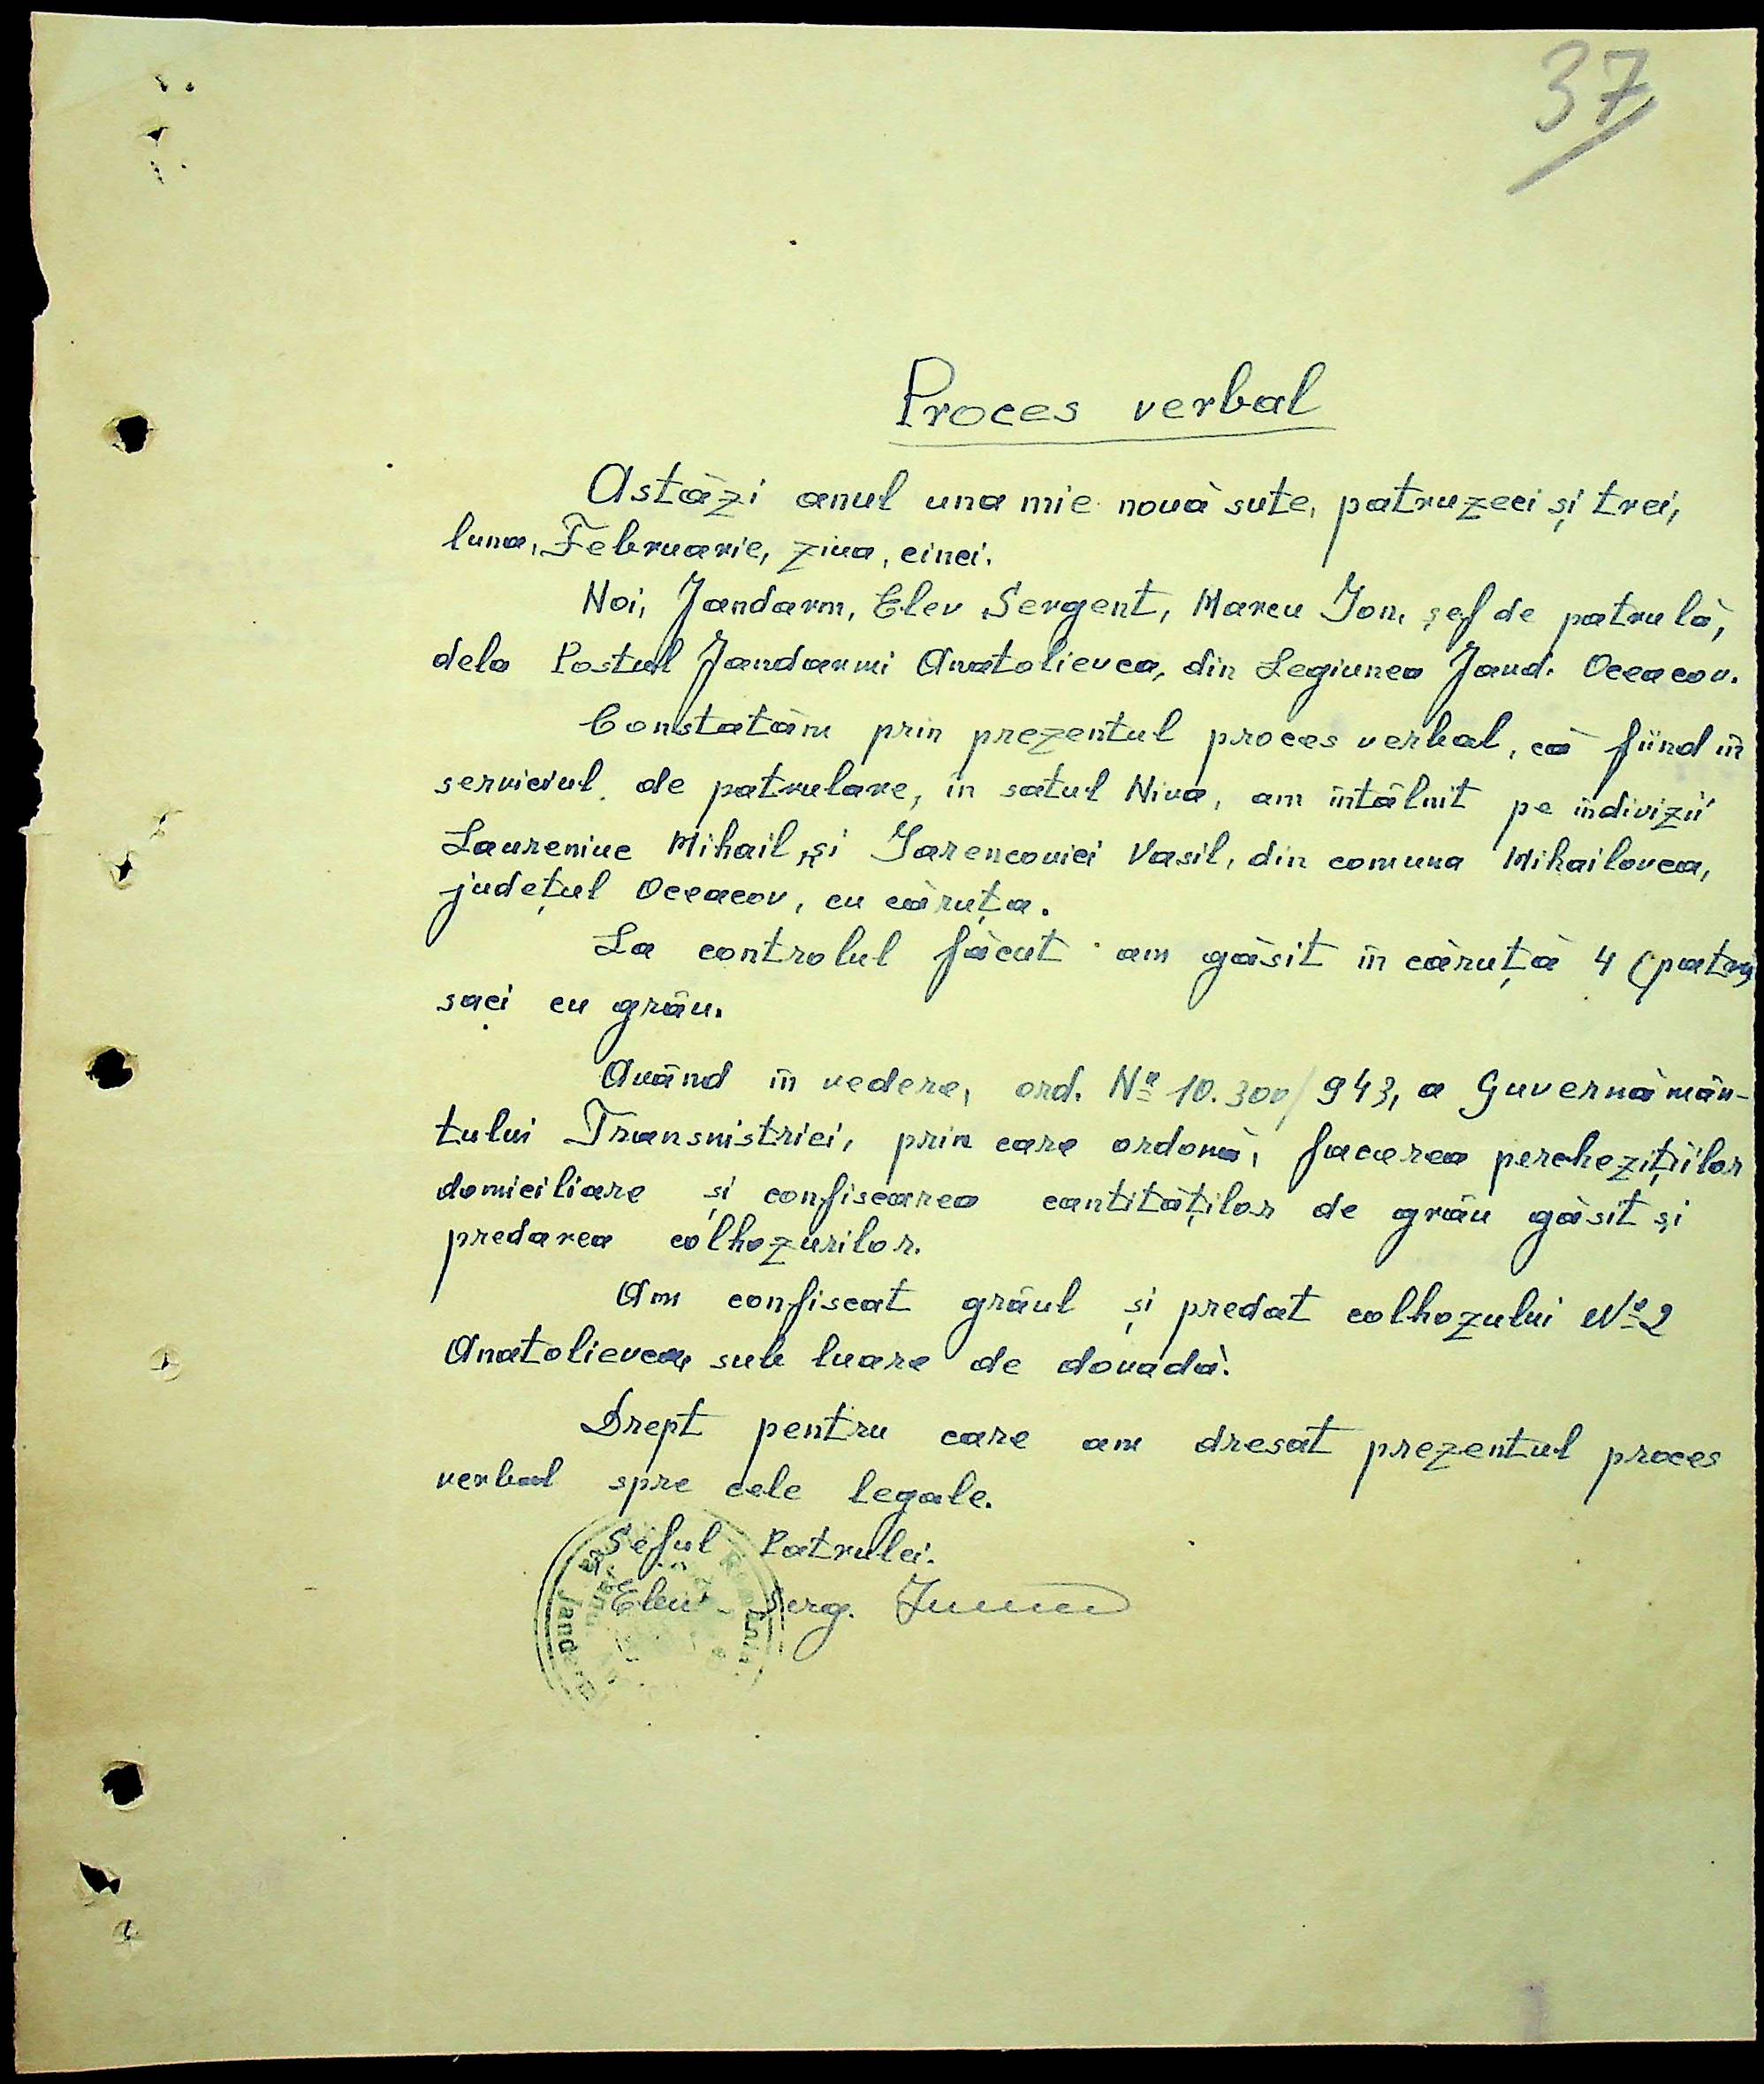 37
Proces verbal
Astăzi anul una mie nouă sute, patruzeci și trei,
luna, Februarie, ziua, cinci.
Noi, Jandarm, Elev Sergent, Marcu Ion, șef de patrulă,
dela Postul Jandarmi Anatolievca, din Legiunea Jand. Oceacov.
Constatăm prin prezentul proces verbal, că fiind în
serviciul de patrulare, în satul Niva, am întâlnit pe indivizii
Laureniuc Mihail, și Iarencovici Vasil, din comuna Mihailovca,
județul Oceacov, cu căruța.
La controlul făcut am găsit în căruță 4 (patru)
saci cu grâu.
Având în vedere, ord. Nº 10.300/943, a Guvernămân-
tului Transnistriei, prin care ordonă, facerea perchezițiilor
domiciliare și confiscarea cantităților de grâu găsit și
predarea colhozurilor.
Am confiscat grâul și predat colhozului Nº 2
Anatolievca, sub luare de dovadă.
Drept pentru care am dresat prezentul proces
verbal spre cele legale.
Șeful Patrulei.
Elev Serg.